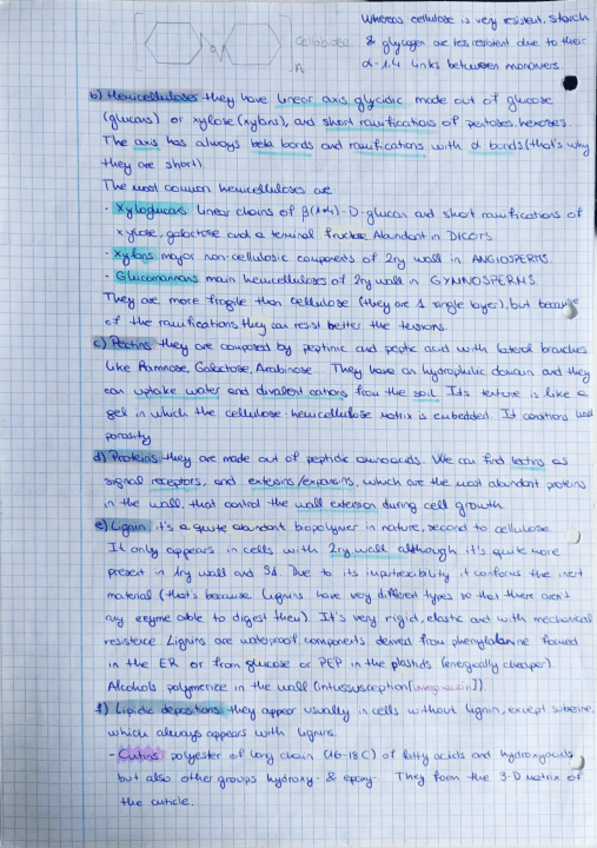 Whereas cellulose is very resistent, starch
& glycogen are less resistent due to their
α-1.4 links between monomers.
cellobiose
n
b) Hemicelluloses they have linear axis glycidic made out of glucose
(glucans) or xylose (xylans), and short ramifications of pentoses, hexoses.
The axis has always beta bonds and ramifications with α bonds (that's why
they are short)
The most common hemicelluloses are
· Xyloglucans linear chains of β(1→4)-D-glucan and short ramifications of
xylose, galactose and a terminal fructose. Abundant in DICOTS
· Xylans major non-cellulosic components of 2ry wall in ANGIOSPERMS.
- Glucomannans main hemicelluloses of 2ry wall in GYMNOSPERMS
They are more fragile than cellulose (they are 1 single layer), but because
of the ramifications they can resist better the tensions.
c) Pectins they are composed by pectinic and peptic acid with lateral branches
like Ramnose, Galactose, Arabinose. They have an hydrophilic domain and they
can uptake water and divalent cations from the soil. Its texture is like a
gel in which the cellulose-hemicellulose matrix is embedded. It conditions wall
porosity
d) Proteins they are made out of peptidic aminoacids. We can find lectins as
signal receptors, and extensins/expansins, which are the most abundant proteins
in the wall, that control the wall extension during cell growth
e) Lignin it's a quite abundant biopolymer in nature, second to cellulose.
It only appears in cells with 2ry wall although it's quite more
present in 1ry wall and Due to its it conforms the inert
material (that's because lignins have very different types so that there aren't
any enzyme able to digest them). It's very rigid, elastic and with mechanical
resistence Lignins are waterproof components derived from phenylalanine formed
in the ER or from glucose or PEP in the plastids (energically cheaper)
Alcohols polymerize in the wall (intussusception [invaginación]).
f) Lipidic depositions they appear usually in cells without lignin, except suberine,
which always appears with lignins.
- Cutins polyester of long chain (16-18C) of fatty acids and hydroxyacids
but also other groups hydroxy- & epoxy-. They form the 3-D matrix of
the cuticle.